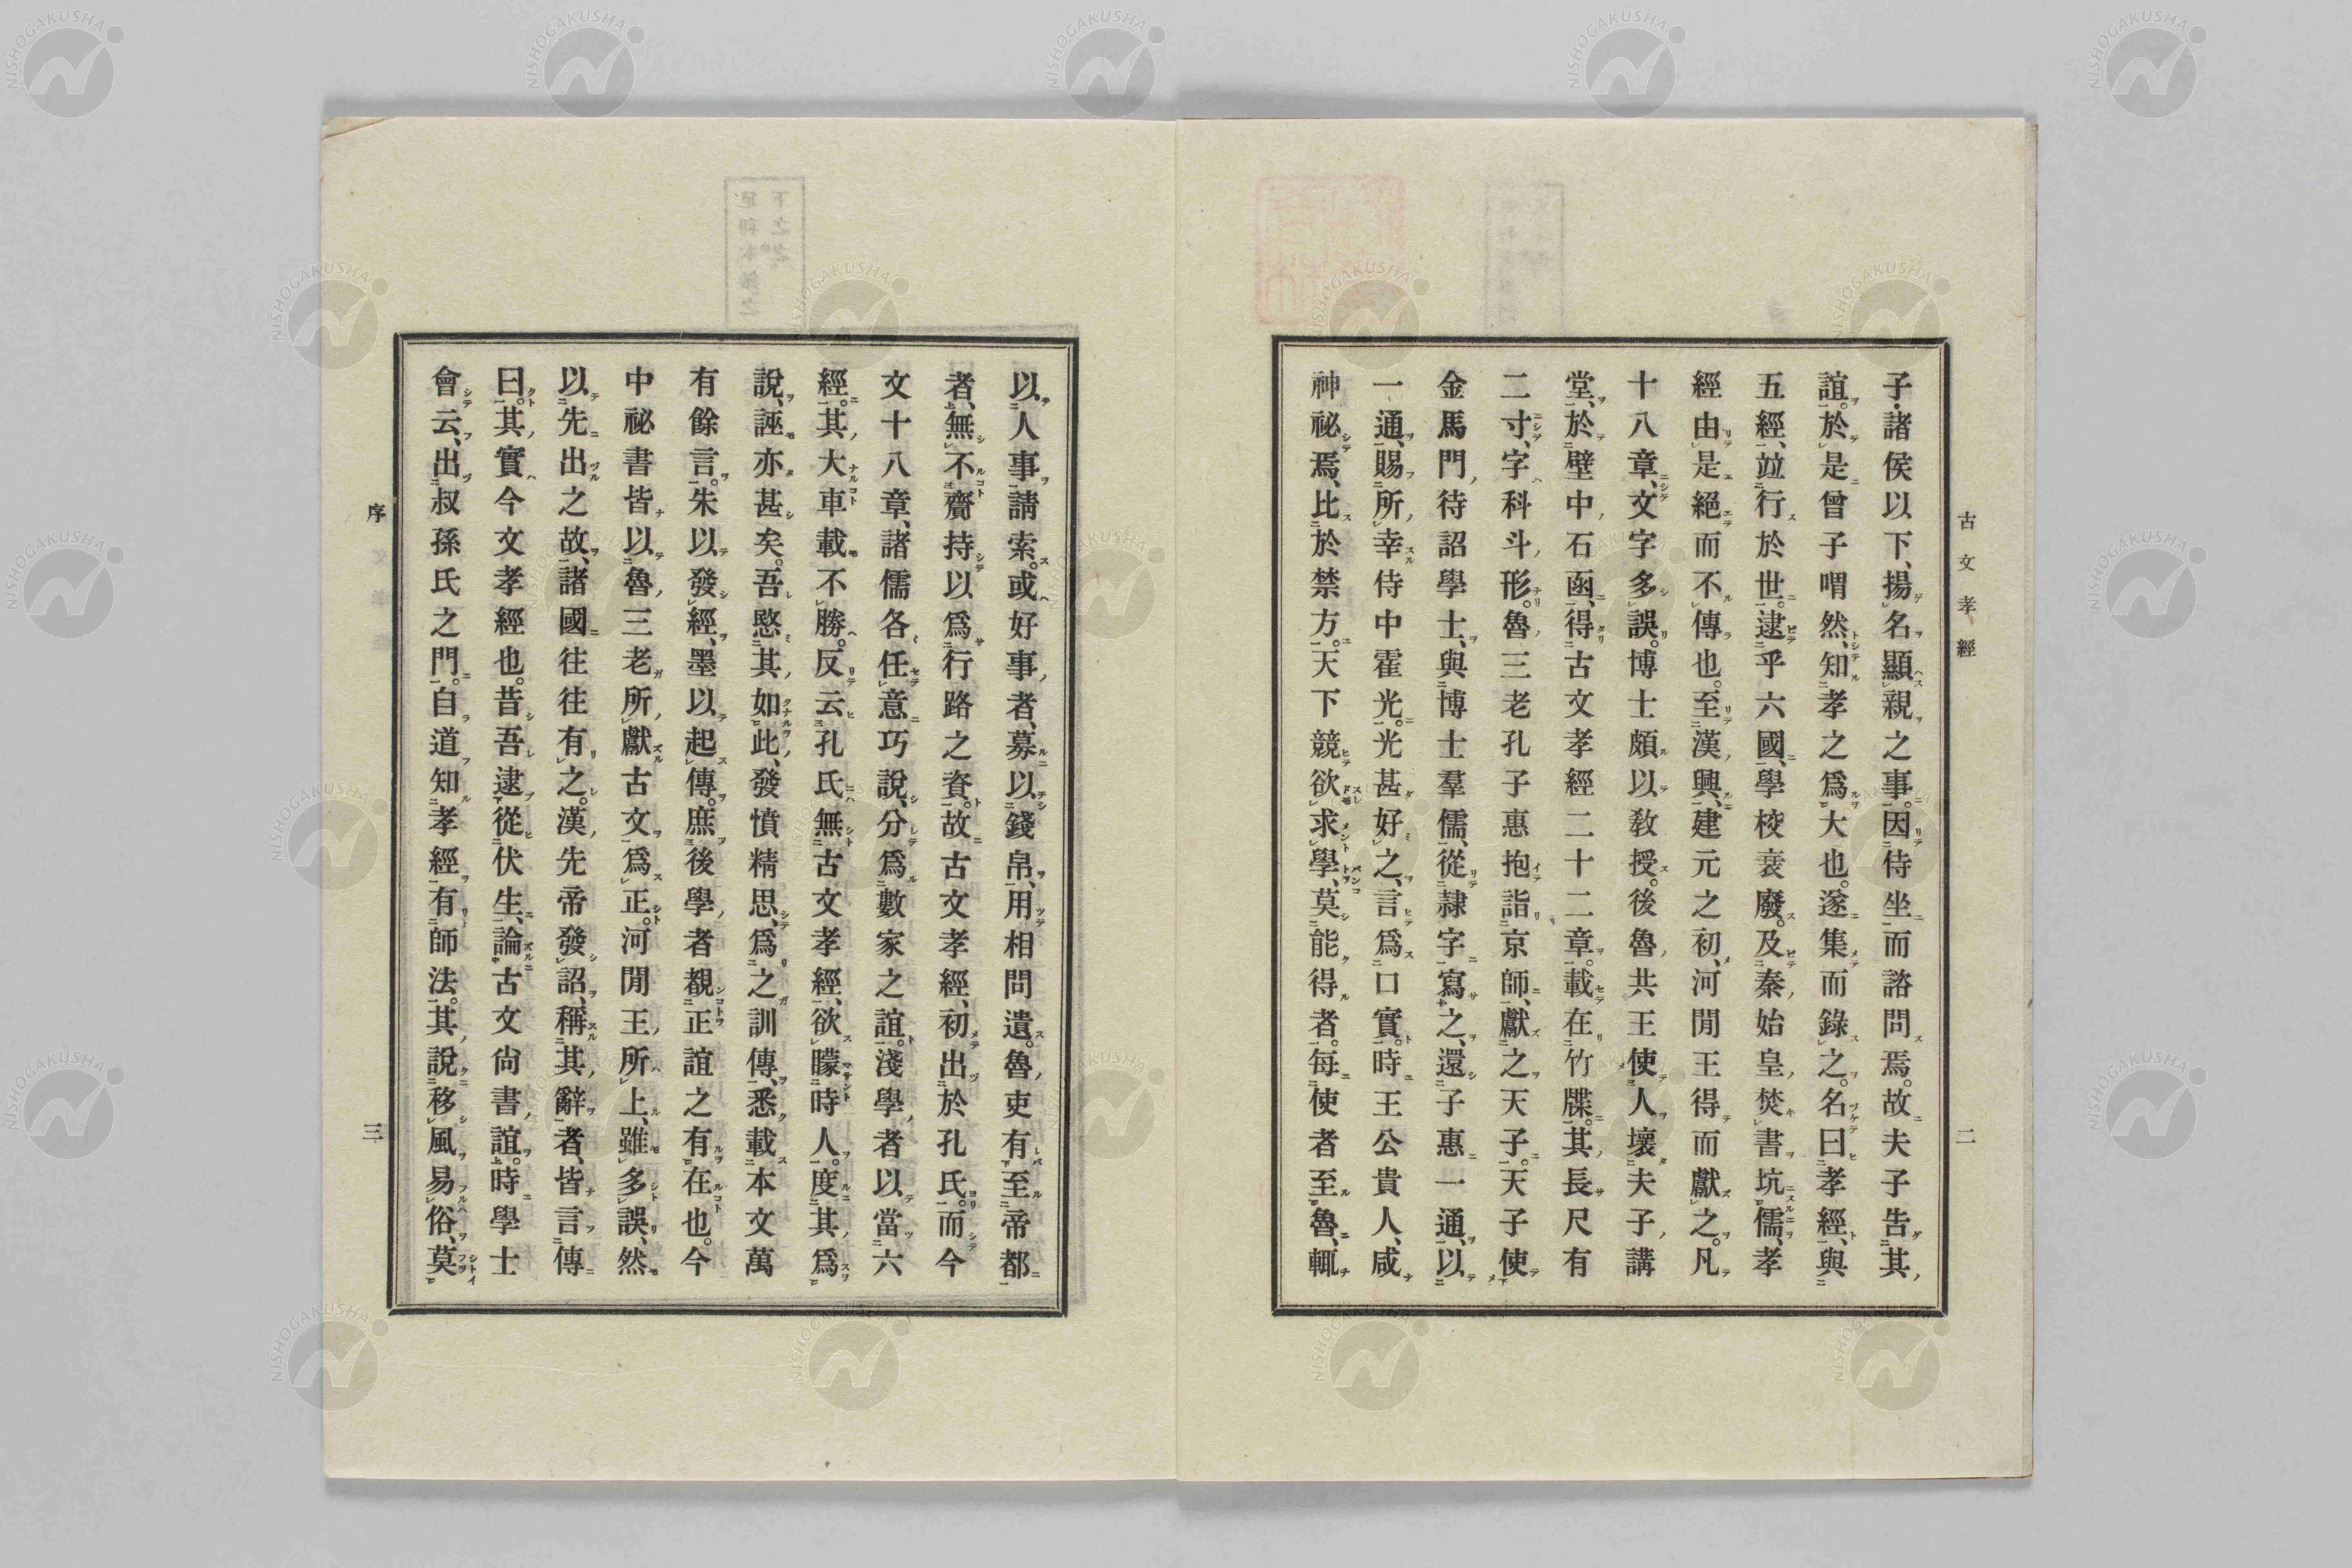 古文孝經
二
子諸侯以下、揚名顯親之事。因侍坐而諮問焉。故夫子告其
誼。於是曾子喟然、知孝之爲大也。遂集而錄之。名曰孝經、與
五經、竝行於世。逮乎六國、學校衰廢。及秦始皇、焚書坑儒、孝
經由是絕而不傳也。至漢興、建元之初、河閒王得而獻之。凡
十八章、文字多誤。博士頗以敎授。後魯共王使人壞夫子講
堂、於壁中石函、得古文孝經二十二章。載在竹牒。其長尺有
二寸、字科斗形。魯三老孔子惠抱詣京師、獻之天子。天子使
金馬門待詔學士、與博士羣儒、從隸字寫之、還子惠一通、以
一通、賜所幸侍中霍光。光甚好之、言爲口實。時王公貴人、咸
神祕焉、比於禁方。天下競欲求學、莫能得者。每使者至魯、輒
以人事請索。或好事者、募以錢帛、用相問遺。魯吏有至帝都
者、無不齎持以爲行路之資。故古文孝經、初出於孔氏。而今
文十八章、諸儒各任意巧說、分爲數家之誼。淺學者以當六
經。其大車載不勝。反云孔氏無古文孝經、欲矇時人。度其爲
說、誣亦甚矣。吾愍其如此、發憤精思、爲之訓傳、悉載本文萬
有餘言。朱以發經、墨以起傳。庶後學者覩正誼之有在也。今
中祕書皆以魯三老所獻古文爲正。河閒王所上、雖多誤、然
以先出之故、諸國往往有之。漢先帝發詔、稱其辭者、皆言傳
曰。其實今文孝經也。昔吾逮從伏生、論古文尙書誼。時學士
會云、出叔孫氏之門。自道知孝經有師法。其說移風易俗、莫
序
三
NISHOGAKUSHA